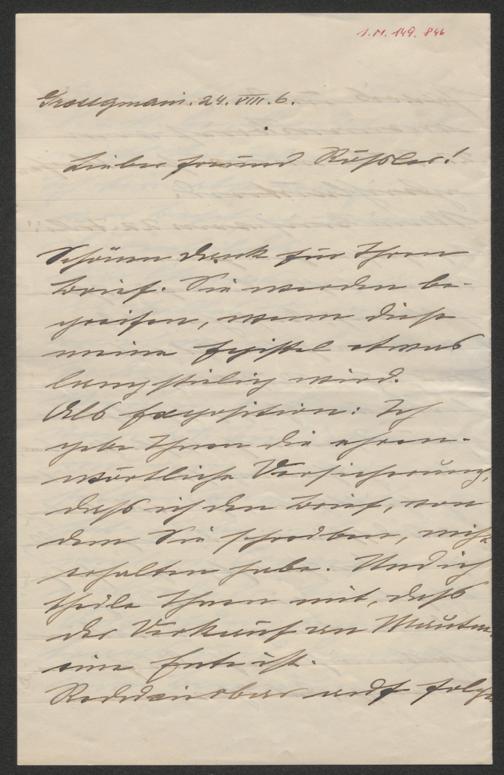 I.N. 149.846
Grossgmain. 24. VIII. 6.
Lieber Freund Rößler!
Schönen Dank für Ihren
Brief. Sie werden be-
greifen, wenn diese
meine Epistel etwas
langstielig wird.
Als Exposition: Ich
gebe Ihnen die ehren-
wörtliche Versicherung,
daß ich den Brief, von
dem Sie schreiben, nicht
erhalten habe. Und ich
theile Ihnen mit, daß
der Verkauf an
eine Ente ist.
auf folge